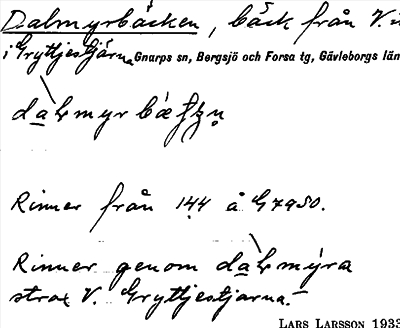 Dalmyrbäcken, bäck från V.
i Gryttjestjärna Gnarps sn, Bergsjö och Forsa tg, Gävleborgs län
Rinner från 144 å G7950.
Rinner genom
strax V. Gryttjestjarna.
LARS LARSSON 1933